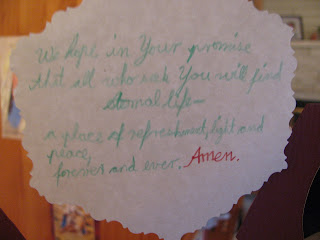 We hope in Your promise
that all who seek You will find
eternal life—
a place of refreshment, light and
peace,
forever and ever. Amen.